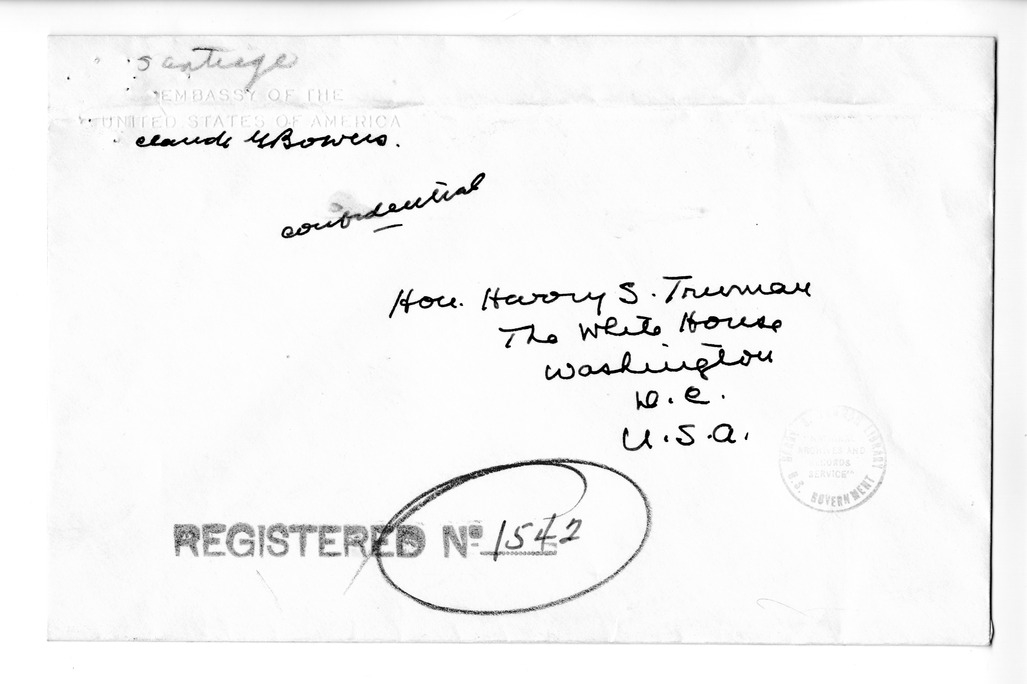 Santiago
EMBASSY OF THE
UNITED STATES OF AMERICA
Claude G Bowers.
confidential
Hon. Harry S. Truman
The White House
Washington
D.C.
U.S.A.
REGISTERED Nº 1542
HARRY S. TRUMAN LIBRARY
ARCHIVES AND
RECORDS
SERVICE
U.S. GOVERNMENT